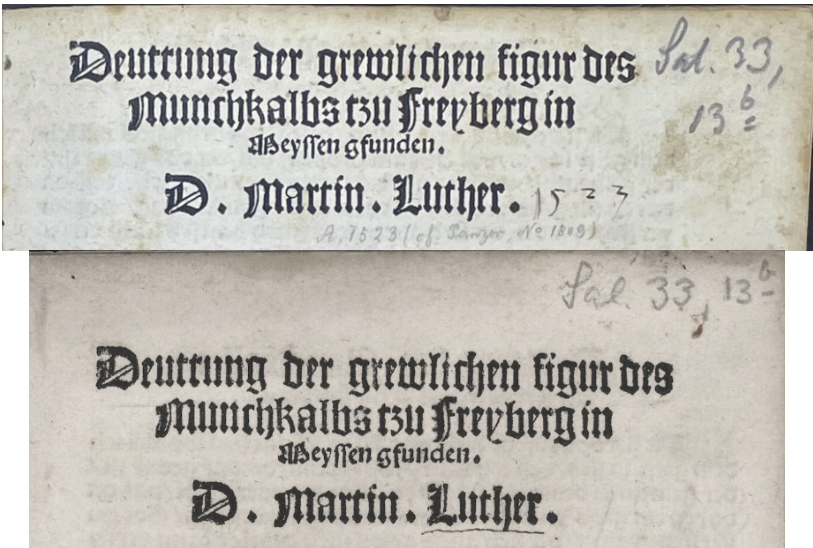 Deuttung der grewlichen figur des
Munchkalbs tzu Freyberg in
Meyssen gfunden.
D. Martin. Luther. 1523
Sal. 33,
13 b
A, 1523 (cf. Panzer, No 1809)
Sal. 33, 13 b
Deuttung der grewlichen figur des
Munchkalbs tzu Freyberg in
Meyssen gfunden.
D. Martin. Luther.